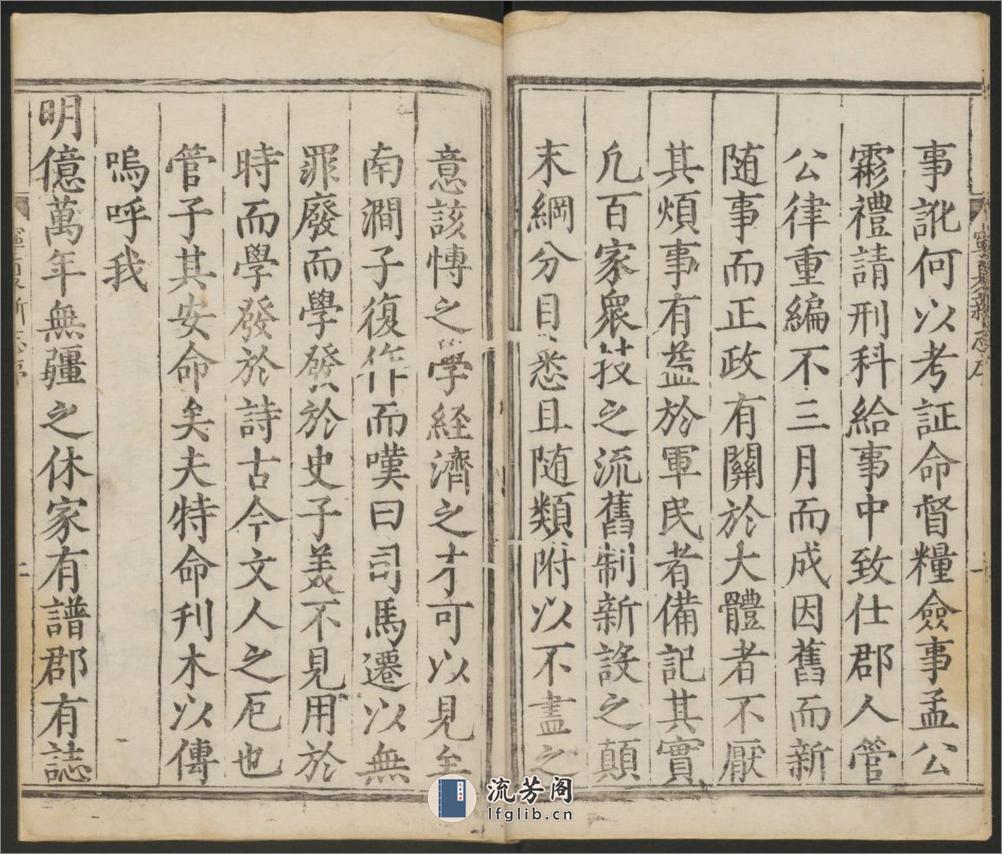 事訛何以考証命督糧僉事孟公
霦禮請刑科給事中致仕郡人管
公律重編不三月而成因舊而新
随事而正政有關於大體者不厭
其煩事有益於軍民者備記其實
凢百家衆技之流舊制新設之顛
末綱分目悉且随類附以不盡之
意該愽之學経濟之才可以見矣
南澗子復作而嘆曰司馬遷以無
罪廢而學發於史子羙不見用於
時而學發於詩古今文人之厄也
管子其安命矣夫特命刋木以傳
嗚呼我
明億萬年無疆之休家有譜郡有誌
寧夏新志序
一
寧夏新志序
二
流芳阁
lfglib.cn